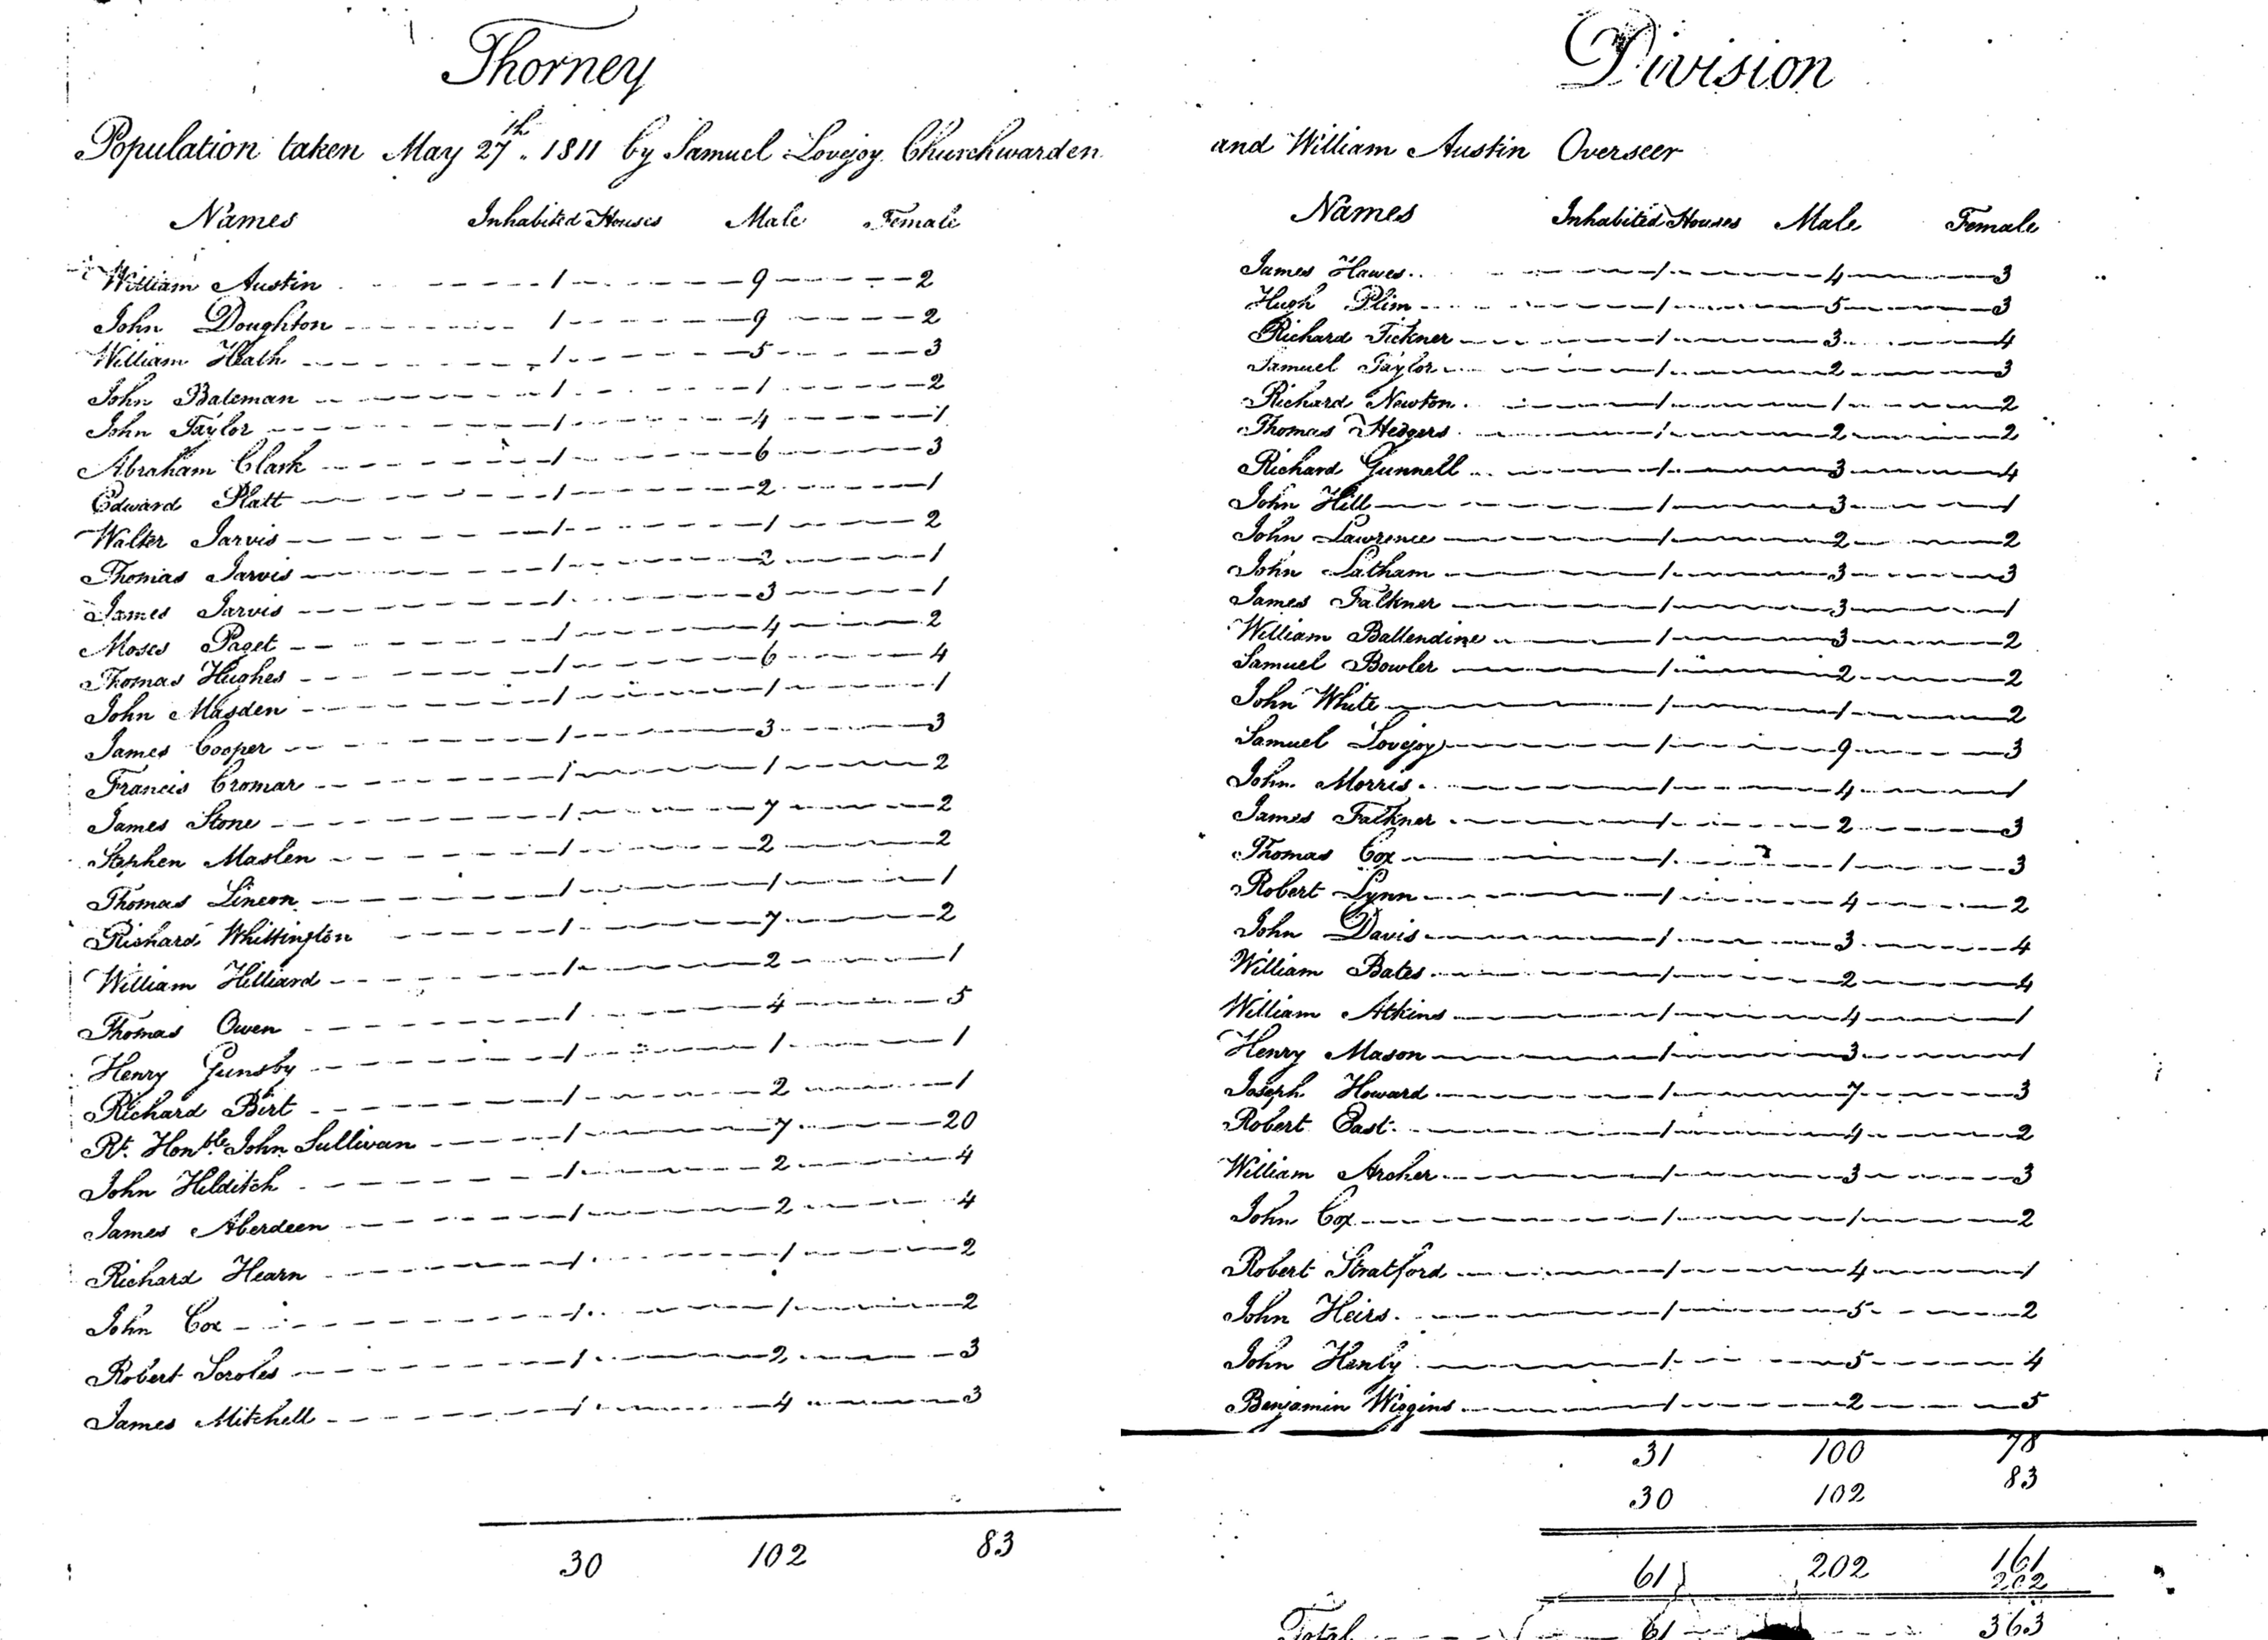 Thorney
Population taken May 27th. 1811 by Samuel Lovejoy Churchwarden
Names Inhabited Houses Male Female
William Austin 1 9 2
John Doughton 1 9 2
William Heath 1 5 3
John Bateman 1 1 2
John Taylor 1 4 1
Abraham Clark 1 6 3
Edward Platt 1 2 1
Walter Jarvis 1 1 2
Thomas Jarvis 1 2 1
James Jarvis 1 3 1
Moses Paget 1 4 2
Thomas Hughes 1 6 4
John Masden 1 1 1
James Cooper 1 3 3
Francis Cromar 1 1 2
James Stone 1 7 2
Stephen Maslen 1 2 2
Thomas Lincon 1 1 1
Richard Whittington 1 7 2
William Hilliard 1 2 1
Thomas Owen 1 4 5
Henry Gunsby 1 1 1
Richard Birt 1 2 1
Rt. Honble. John Sullivan 1 7 20
John Hilditch 1 2 4
James Aberdeen 1 2 4
Richard Hearn 1 1 2
John Cox 1 1 2
Robert Scroles 1 2 3
James Mitchell 1 4 3
30 102 83
Division
and William Austin Overseer
Names Inhabited Houses Male Female
James Hawes 1 4 3
Hugh Plim 1 5 3
Richard Tickner 1 3 4
Samuel Taylor 1 2 3
Richard Newton 1 1 2
Thomas Hedgers 1 2 2
Richard Gunnell 1 3 4
John Hill 1 3 1
John Lawrence 1 2 2
John Latham 1 3 3
James Falkner 1 3 1
William Ballendine 1 3 2
Samuel Bowler 1 2 2
John White 1 1 2
Samuel Lovejoy 1 9 3
John Morris 1 4 1
James Falkner 1 2 3
Thomas Cox 1 1 3
Robert Lynn 1 4 2
John Davis 1 3 4
William Bates 1 2 4
William Atkins 1 4 1
Henry Mason 1 3 1
Joseph Howard 1 7 3
Robert East 1 4 2
William Archer 1 3 3
John Cox 1 1 2
Robert Stratford 1 4 1
John Heirs 1 5 2
John Henly 1 5 4
Benjamin Wiggins 1 2 5
31 100 78
30 102 83
61 202 161
202
Total 61 363